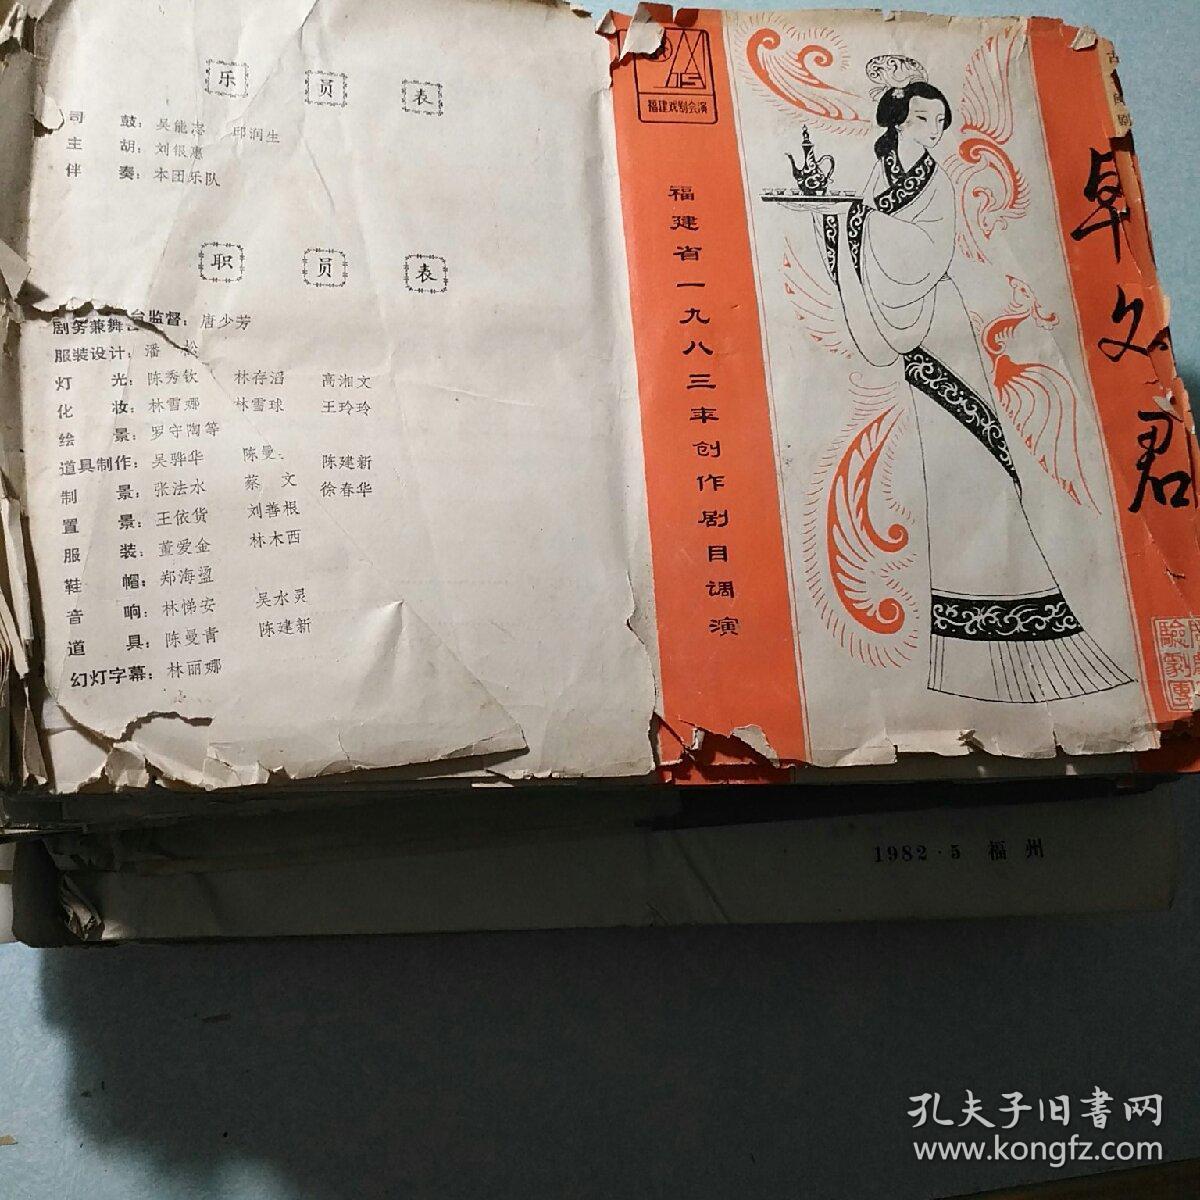 乐员表
司 鼓：吴能忠 邱润生
主 胡：刘银惠
伴 奏：本团乐队
职员表
剧务兼舞台监督：唐少芳
服装设计：潘 松
灯 光：陈秀钦 林存滔 高湘文
化 妆：林雪娜 林雪球 王玲玲
绘 景：罗守陶等
道具制作：吴骅华 陈曼 陈建新
制 景：张法水 蔡 文 徐春华
置 景：王依货 刘善根
服 装：董爱金 林木西
鞋 帽：郑海溋
音 响：林悌安 吴水灵
道 具：陈曼青 陈建新
幻灯字幕：林丽娜
福建戏剧会演
福建省一九八三年创作剧目调演
卓文君
1982·5 福州
孔夫子旧書网
www.kongfz.com